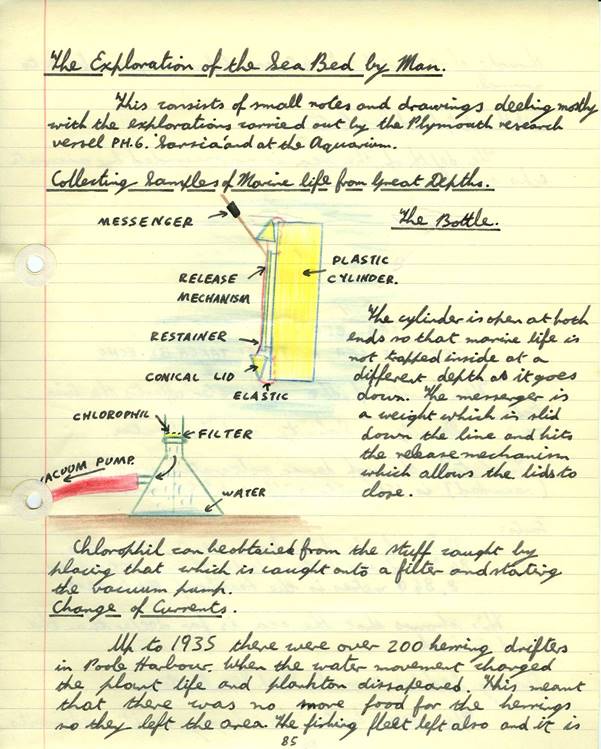 The Exploration of the Sea Bed by Man.
This consists of small notes and drawings deeling mostly
with the explorations carried out by the Plymouth research
vessel PH.6. 'Sarsia' and at the Aquarium.
Collecting Samples of Marine life from Great Depths.
MESSENGER
The Bottle.
RELEASE
MECHANISM
PLASTIC
CYLINDER.
RESTAINER
CONICAL LID
ELASTIC
The cylinder is open at both
ends so that marine life is
not trapped inside at a
different depth as it goes
down. The messenger is
a weight which is slid
down the line and hits
the release mechanism
which allows the lids to
close.
CHLOROPHIL
FILTER
VACUUM PUMP.
WATER
Chlorophil can be obtained from the stuff caught by
placing that which is caught onto a filter and starting
the vacuum pump.
Change of Currents.
Up to 1935 there were over 200 herring drifters
in Poole Harbour. When the water movement changed
the plant life and plankton dissapeared. This meant
that there was no more food for the herrings
so they left the area. The fishing fleet left also and it is
85